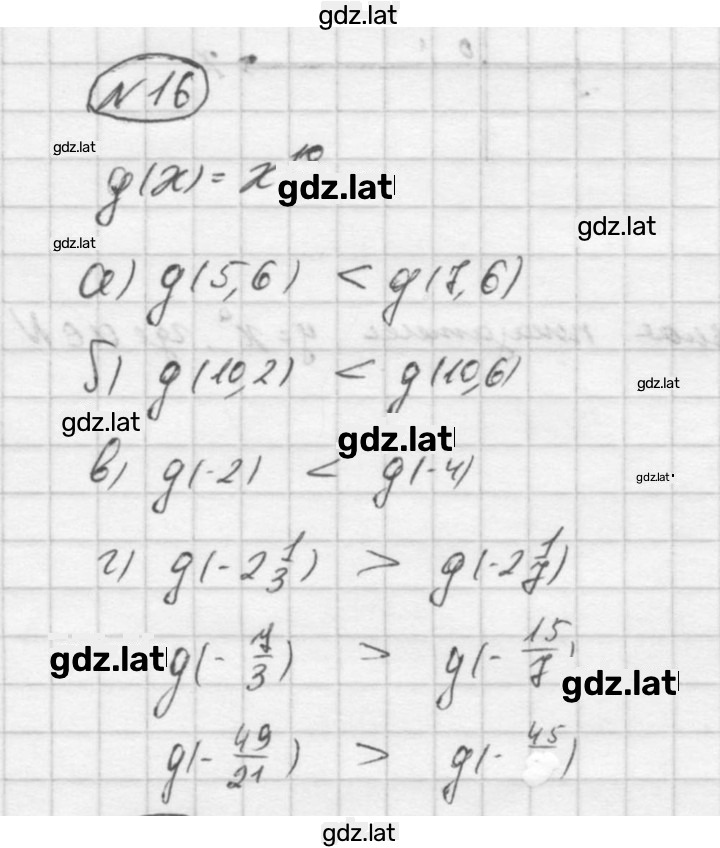 gdz.lat
№ 16
gdz.lat
g(x) = x^10
gdz.lat
gdz.lat
gdz.lat
а) g(5,6) < g(7,6)
б) g(10,2) < g(10,6)
gdz.lat
gdz.lat
gdz.lat
в) g(-2) < g(-4)
gdz.lat
г) g(-2 1/3) > g(-2 1/7)
gdz.lat
g(-7/3) > g(-15/7)
gdz.lat
g(-49/21) > g(-45/ )
gdz.lat